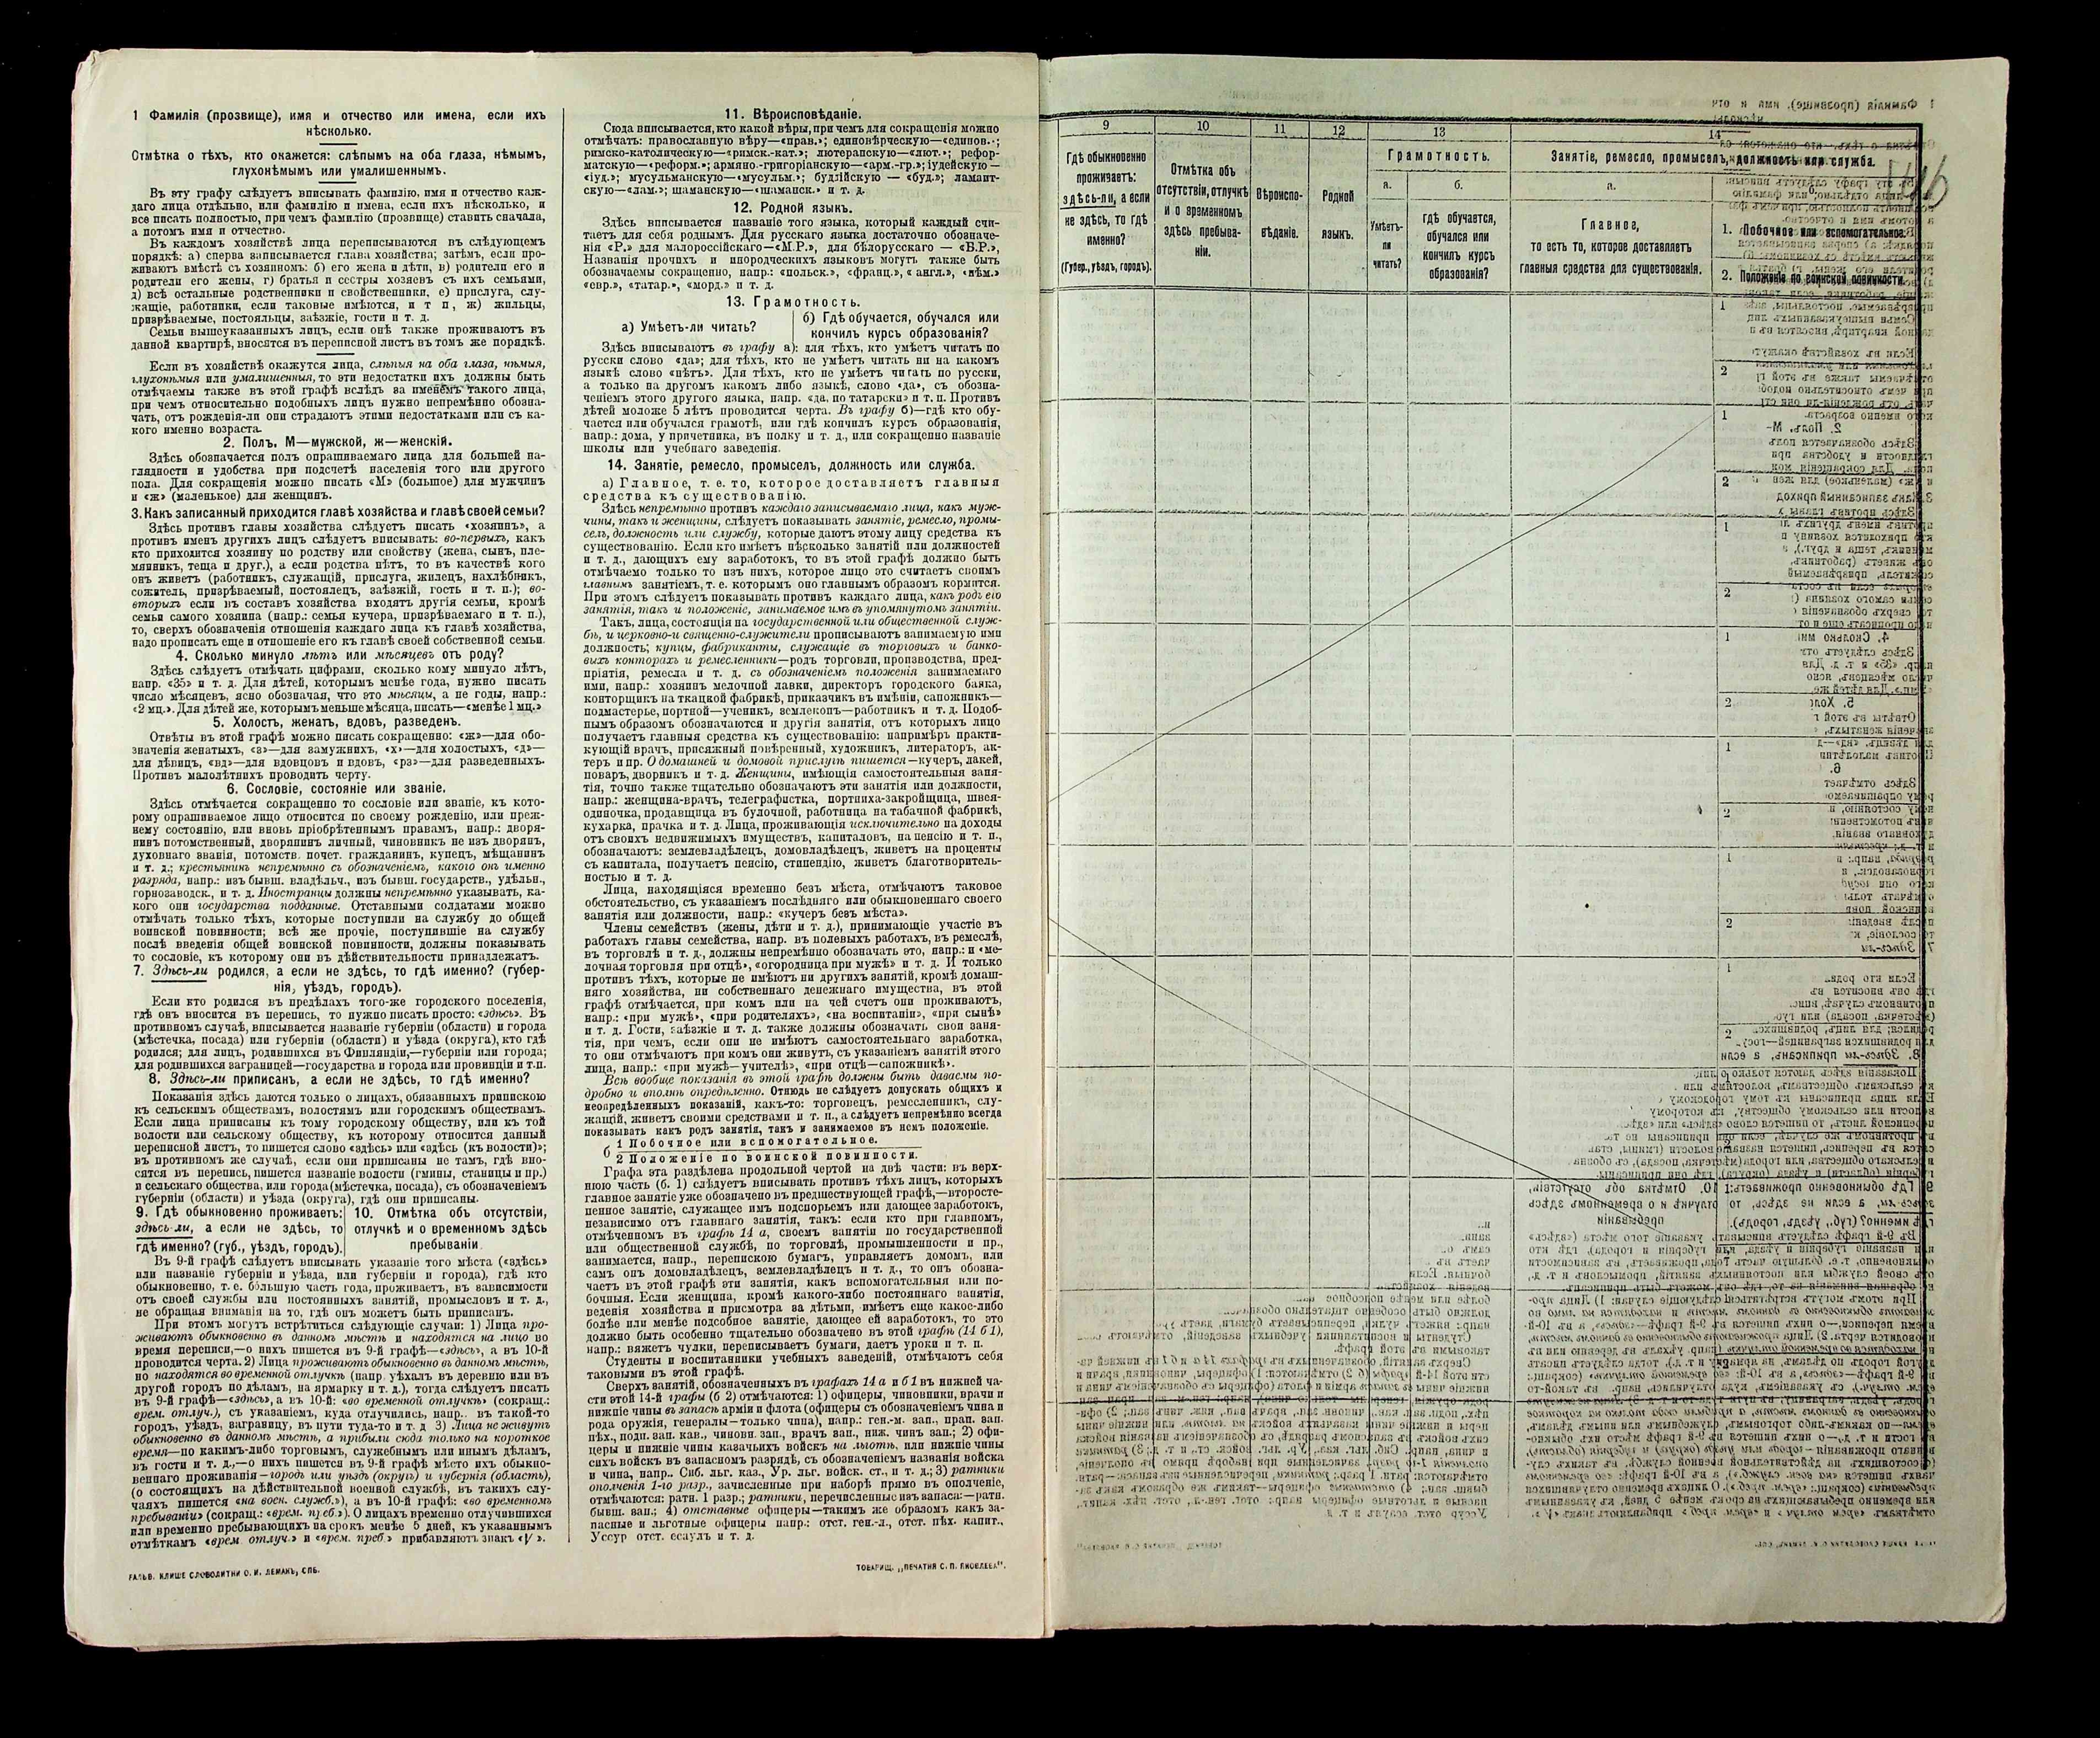 1 Фамилія (прозвище), имя и отчество или имена, если ихъ
нѣсколько.
Отмѣтка о тѣхъ, кто окажется: слѣпымъ на оба глаза, нѣмымъ,
глухонѣмымъ или умалишеннымъ.
Въ эту графу слѣдуетъ вписывать фамилію, имя и отчество каж-
даго лица отдѣльно, или фамилію и имена, если ихъ нѣсколько, и
все писать полностью, при чемъ фамилію (прозвище) ставить сначала,
а потомъ имя и отчество.
Въ каждомъ хозяйствѣ лица переписываются въ слѣдующемъ
порядкѣ: а) сперва записывается глава хозяйства; затѣмъ, если про-
живаютъ вмѣстѣ съ хозяиномъ: б) его жена и дѣти, в) родители его и
родители его жены, г) братья и сестры хозяевъ съ ихъ семьями,
д) всѣ остальные родственники и свойственники, е) прислуга, слу-
жащіе, работники, если таковые имѣются, и т п, ж) жильцы,
призрѣваемые, постояльцы, заѣзжіе, гости и т. д.
Семьи вышеуказанныхъ лицъ, если онѣ также проживаютъ въ
данной квартирѣ, вносятся въ переписной листъ въ томъ же порядкѣ.
Если въ хозяйствѣ окажутся лица, слѣпыя на оба глаза, нѣмыя,
глухонѣмыя или умалишенныя, то эти недостатки ихъ должны быть
отмѣчаемы также въ этой графѣ вслѣдъ за именемъ такого лица,
при чемъ относительно подобныхъ лицъ нужно непремѣнно обозна-
чать, отъ рожденія-ли они страдаютъ этими недостатками или съ ка-
кого именно возраста.
2. Полъ, М—мужской, ж—женскій.
Здѣсь обозначается полъ опрашиваемаго лица для большей на-
глядности и удобства при подсчетѣ населенія того или другого
пола. Для сокращенія можно писать «М» (большое) для мужчинъ
и «ж» (маленькое) для женщинъ.
3. Какъ записанный приходится главѣ хозяйства и главѣ своей семьи?
Здѣсь противъ главы хозяйства слѣдуетъ писать «хозяинъ», а
противъ именъ другихъ лицъ слѣдуетъ вписывать: во-первыхъ, какъ
кто приходится хозяину по родству или свойству (жена, сынъ, пле-
мянникъ, теща и друг.), а если родства нѣтъ, то въ качествѣ кого
онъ живетъ (работникъ, служащій, прислуга, жилецъ, нахлѣбникъ,
сожитель, призрѣваемый, постоялецъ, заѣзжій, гость и т. п.); во-
вторыхъ если въ составъ хозяйства входятъ другія семьи, кромѣ
семьи самого хозяина (напр.: семья кучера, призрѣваемаго и т. п.),
то, сверхъ обозначенія отношенія каждаго лица къ главѣ хозяйства,
надо прописать еще и отношеніе его къ главѣ своей собственной семьи.
4. Сколько минуло лѣтъ или мѣсяцевъ отъ роду?
Здѣсь слѣдуетъ отмѣчать цифрами, сколько кому минуло лѣтъ,
напр. «35» и т. д. Для дѣтей, которымъ менѣе года, нужно писать
число мѣсяцевъ, ясно обозначая, что это мѣсяцы, а не годы, напр.:
«2 мц.». Для дѣтей же, которымъ меньше мѣсяца, писать—«менѣе 1 мц.»
5. Холостъ, женатъ, вдовъ, разведенъ.
Отвѣты въ этой графѣ можно писать сокращенно: «ж»—для обо-
значенія женатыхъ, «з»—для замужнихъ, «х»—для холостыхъ, «д»—
для дѣвицъ, «вд»—для вдовцовъ и вдовъ, «рз»—для разведенныхъ.
Противъ малолѣтнихъ проводить черту.
6. Сословіе, состояніе или званіе.
Здѣсь отмѣчается сокращенно то сословіе или званіе, къ кото-
рому опрашиваемое лицо относится по своему рожденію, или преж-
нему состоянію, или вновь пріобрѣтеннымъ правамъ, напр.: дворя-
нинъ потомственный, дворянинъ личный, чиновникъ не изъ дворянъ,
духовнаго званія, потомств. почет. гражданинъ, купецъ, мѣщанинъ
и т. д.; крестьянинъ непремѣнно съ обозначеніемъ, какого онъ именно
разряда, напр.: изъ бывш. владѣльч., изъ бывш. государств., удѣльн.,
горнозаводск., и т. д. Иностранцы должны непремѣнно указывать, ка-
кого они государства подданные. Отставными солдатами можно
отмѣчать только тѣхъ, которые поступили на службу до общей
воинской повинности; всѣ же прочіе, поступившіе на службу
послѣ введенія общей воинской повинности, должны показывать
то сословіе, къ которому они въ дѣйствительности принадлежатъ.
7. Здѣсь-ли родился, а если не здѣсь, то гдѣ именно? (губер-
нія, уѣздъ, городъ).
Если кто родился въ предѣлахъ того-же городского поселенія,
гдѣ онъ вносится въ перепись, то нужно писать просто: «здѣсь». Въ
противномъ случаѣ, вписывается названіе губерніи (области) и города
(мѣстечка, посада) или губерніи (области) и уѣзда (округа), кто гдѣ
родился; для лицъ, родившихся въ Финляндіи,—губерніи или города;
для родившихся заграницей—государства и города или провинціи и т.п.
8. Здѣсь-ли приписанъ, а если не здѣсь, то гдѣ именно?
Показанія здѣсь даются только о лицахъ, обязанныхъ припискою
къ сельскимъ обществамъ, волостямъ или городскимъ обществамъ.
Если лица приписаны къ тому городскому обществу, или къ той
волости или сельскому обществу, къ которому относится данный
переписной листъ, то пишется слово «здѣсь» или «здѣсь (къ волости)»;
въ противномъ же случаѣ, если они приписаны не тамъ, гдѣ вно-
сятся въ перепись, пишется названіе волости (гмины, станицы и пр.)
и сельскаго общества, или города (мѣстечка, посада), съ обозначеніемъ
губерніи (области) и уѣзда (округа), гдѣ они приписаны.
9. Гдѣ обыкновенно проживаетъ:
здѣсь-ли, а если не здѣсь, то
гдѣ именно? (губ., уѣздъ, городъ).
10. Отмѣтка объ отсутствіи,
отлучкѣ и о временномъ здѣсь
пребываніи
Въ 9-й графѣ слѣдуетъ вписывать указаніе того мѣста («здѣсь»
или названіе губерніи и уѣзда, или губерніи и города), гдѣ кто
обыкновенно, т. е. бо́льшую часть года, проживаетъ, въ зависимости
отъ своей службы или постоянныхъ занятій, промысловъ и т. д.,
не обращая вниманія на то, гдѣ онъ можетъ быть приписанъ.
При этомъ могутъ встрѣтиться слѣдующіе случаи: 1) Лица про-
живаютъ обыкновенно въ данномъ мѣстѣ и находятся на лицо во
время переписи,—о нихъ пишется въ 9-й графѣ—«здѣсь», а въ 10-й
проводится черта. 2) Лица проживаютъ обыкновенно въ данномъ мѣстѣ,
но находятся во временной отлучкѣ (напр. уѣхалъ въ деревню или въ
другой городъ по дѣламъ, на ярмарку и т. д.), тогда слѣдуетъ писать
въ 9-й графѣ—«здѣсь», а въ 10-й: «во временной отлучкѣ» (сокращ.:
врем. отлуч.), съ указаніемъ, куда отлучились, напр.. въ такой-то
городъ, уѣздъ, заграницу, въ пути туда-то и т. д 3) Лица не живутъ
обыкновенно въ данномъ мѣстѣ, а прибыли сюда только на короткое
время—по какимъ-либо торговымъ, служебнымъ или инымъ дѣламъ,
въ гости и т. д.,—о нихъ пишется въ 9-й графѣ мѣсто ихъ обыкно-
веннаго проживанія—городъ или уѣздъ (округъ) и губернія (область),
(о состоящихъ на дѣйствительной военной службѣ, въ такихъ слу-
чаяхъ пишется «на воен. служб.»), а въ 10-й графѣ: «во временномъ
пребываніи» (сокращ.: «врем. преб.»). О лицахъ временно отлучившихся
или временно пребывающихъ на срокъ менѣе 5 дней, къ указаннымъ
отмѣткамъ «врем отлуч.» и «врем. преб» прибавляютъ знакъ «V».
ГАЛЬВ. КЛИШЕ СЛОВОЛИТНИ О. И. ЛЕМАНЪ, СПБ.
11. Вѣроисповѣданіе.
Сюда вписывается, кто какой вѣры, при чемъ для сокращенія можно
отмѣчать: православную вѣру—«прав.»; единовѣрческую—«единов.»;
римско-католическую—«римск.-кат.»; лютеранскую—«лют.»; рефор-
матскую—«реформ.»; армяно-григоріанскую—«арм.-гр.»; іудейскую—
«іуд.»; мусульманскую—«мусульм.»; буддійскую — «буд.»; ламаит-
скую—«лам.»; шаманскую—«шаманск.» и т. д.
12. Родной языкъ.
Здѣсь вписывается названіе того языка, который каждый счи-
таетъ для себя роднымъ. Для русскаго языка достаточно обозначе-
нія «Р.» для малороссійскаго—«М.Р.», для бѣлорусскаго — «Б.Р.»,
Названія прочихъ и инородческихъ языковъ могутъ также быть
обозначаемы сокращенно, напр.: «польск.», «франц.», «англ.», «нѣм.»
«евр.», «татар.», «морд.» и т. д.
13. Грамотность.
а) Умѣетъ-ли читать?
б) Гдѣ обучается, обучался или
кончилъ курсъ образованія?
Здѣсь вписываютъ въ графу а): для тѣхъ, кто умѣетъ читать по
русски слово «да»; для тѣхъ, кто не умѣетъ читать ни на какомъ
языкѣ слово «нѣтъ». Для тѣхъ, кто не умѣетъ читать по русски,
а только на другомъ какомъ либо языкѣ, слово «да», съ обозна-
ченіемъ этого другого языка, напр. «да, по татарски» и т. п. Противъ
дѣтей моложе 5 лѣтъ проводится черта. Въ графу б)—гдѣ кто обу-
чается или обучался грамотѣ, или гдѣ кончилъ курсъ образованія,
напр.: дома, у причетника, въ полку и т. д., или сокращенно названіе
школы или учебнаго заведенія.
14. Занятіе, ремесло, промыселъ, должность или служба.
а) Главное, т. е. то, которое доставляетъ главныя
средства къ существованію.
Здѣсь непремѣнно противъ каждаго записываемаго лица, какъ муж-
чины, такъ и женщины, слѣдуетъ показывать занятіе, ремесло, промы-
селъ, должность или службу, которые даютъ этому лицу средства къ
существованію. Если кто имѣетъ нѣсколько занятій или должностей
и т. д., дающихъ ему заработокъ, то въ этой графѣ должно быть
отмѣчаемо только то изъ нихъ, которое лицо это считаетъ своимъ
главнымъ занятіемъ, т. е. которымъ оно главнымъ образомъ кормится.
При этомъ слѣдуетъ показывать противъ каждаго лица, какъ родъ его
занятія, такъ и положеніе, занимаемое имъ въ упомянутомъ занятіи.
Такъ, лица, состоящія на государственной или общественной служ-
бѣ, и церковно-и священно-служители прописываютъ занимаемую ими
должность; купцы, фабриканты, служащіе въ торговыхъ и банко-
выхъ конторахъ и ремесленники—родъ торговли, производства, пред-
пріятія, ремесла и т. д. съ обозначеніемъ положенія занимаемаго
ими, напр.: хозяинъ мелочной лавки, директоръ городского банка,
конторщикъ на ткацкой фабрикѣ, приказчикъ въ имѣніи, сапожникъ—
подмастерье, портной—ученикъ, землекопъ—работникъ и т. д. Подоб-
нымъ образомъ обозначаются и другія занятія, отъ которыхъ лицо
получаетъ главныя средства къ существованію: напримѣръ практи-
кующій врачъ, присяжный повѣренный, художникъ, литераторъ, ак-
теръ и пр. О домашней и домовой прислугѣ пишется—кучеръ, лакей,
поваръ, дворникъ и т. д. Женщины, имѣющія самостоятельныя заня-
тія, точно также тщательно обозначаютъ эти занятія или должности,
напр.: женщина-врачъ, телеграфистка, портниха-закройщица, швея-
одиночка, продавщица въ булочной, работница на табачной фабрикѣ,
кухарка, прачка и т. д. Лица, проживающія исключительно на доходы
отъ своихъ недвижимыхъ имуществъ, капиталовъ, на пенсію и т. п.,
обозначаютъ: землевладѣлецъ, домовладѣлецъ, живетъ на проценты
съ капитала, получаетъ пенсію, стипендію, живетъ благотворитель-
ностью и т. д.
Лица, находящіяся временно безъ мѣста, отмѣчаютъ таковое
обстоятельство, съ указаніемъ послѣдняго или обыкновеннаго своего
занятія или должности, напр.: «кучеръ безъ мѣста».
Члены семействъ (жены, дѣти и т. д.), принимающіе участіе въ
работахъ главы семейства, напр. въ полевыхъ работахъ, въ ремеслѣ,
въ торговлѣ и т. д., должны непремѣнно обозначать это, напр.: и «ме-
лочная торговля при отцѣ», «огородница при мужѣ» и т. д. И только
противъ тѣхъ, которые не имѣютъ ни другихъ занятій, кромѣ домаш-
няго хозяйства, ни собственнаго денежнаго имущества, въ этой
графѣ отмѣчается, при комъ или на чей счетъ они проживаютъ,
напр.: «при мужѣ», «при родителяхъ», «на воспитаніи», «при сынѣ»
и т. д. Гости, заѣзжіе и т. д. также должны обозначать свои заня-
тія, при чемъ, если они не имѣютъ самостоятельнаго заработка,
то они отмѣчаютъ при комъ они живутъ, съ указаніемъ занятій этого
лица, напр.: «при мужѣ—учителѣ», «при отцѣ—сапожникѣ».
Всѣ вообще показанія въ этой графѣ должны быть даваемы по-
дробно и вполнѣ опредѣленно. Отнюдь не слѣдуетъ допускать общихъ и
неопредѣленныхъ показаній, какъ-то: торговецъ, ремесленникъ, слу-
жащій, живетъ своими средствами и т. п., а слѣдуетъ непремѣнно всегда
показывать какъ родъ занятія, такъ и занимаемое въ немъ положеніе.
б
1 Побочное или вспомогательное.
2 Положеніе по воинской повинности.
Графа эта раздѣлена продольной чертой на двѣ части: въ верх-
нюю часть (б. 1) слѣдуетъ вписывать противъ тѣхъ лицъ, которыхъ
главное занятіе уже обозначено въ предшествующей графѣ,—второсте-
пенное занятіе, служащее имъ подспорьемъ или дающее заработокъ,
независимо отъ главнаго занятія, такъ: если кто при главномъ,
отмѣченномъ въ графѣ 14 а, своемъ занятіи по государственной
или общественной службѣ, по торговлѣ, промышленности и пр.,
занимается, напр., перепискою бумагъ, управляетъ домомъ, или
самъ онъ домовладѣлецъ, землевладѣлецъ и т. д., то онъ обозна-
чаетъ въ этой графѣ эти занятія, какъ вспомогательныя или по-
бочныя. Если женщина, кромѣ какого-либо постояннаго занятія,
веденія хозяйства и присмотра за дѣтьми, имѣетъ еще какое-либо
болѣе или менѣе подсобное занятіе, дающее ей заработокъ, то это
должно быть особенно тщательно обозначено въ этой графѣ (14 б 1),
напр.: вяжетъ чулки, переписываетъ бумаги, даетъ уроки и т. п.
Студенты и воспитанники учебныхъ заведеній, отмѣчаютъ себя
таковыми въ этой графѣ.
Сверхъ занятій, обозначенныхъ въ графахъ 14 а и б 1 въ нижней ча-
сти этой 14-й графы (б 2) отмѣчаются: 1) офицеры, чиновники, врачи и
нижніе чины въ запасѣ арміи и флота (офицеры съ обозначеніемъ чина и
рода оружія, генералы—только чина), напр.: ген.-м. зап., прап. зап.
пѣх., подп. зап. кав., чиновн. зап., врачъ зап., ниж. чинъ зап.; 2) офи-
церы и нижніе чины казачьихъ войскъ на льготѣ, или нижніе чины
сихъ войскъ въ запасномъ разрядѣ, съ обозначеніемъ названія войска
и чина, напр.. Сиб. льг. каз., Ур. льг. войск. ст., и т. д.; 3) ратники
ополченія 1-го разр., зачисленные при наборѣ прямо въ ополченіе,
отмѣчаются: ратн. 1 разр.; ратники, перечисленные изъ запаса:—ратн.
бывш. зап.; 4) отставные офицеры—такимъ же образомъ какъ за-
пасные и льготные офицеры напр.: отст. ген.-л., отст. пѣх. капит.,
Уссур отст. есаулъ и т. д.
ТОВАРИЩ. „ПЕЧАТНЯ С. П. ЯКОВЛЕВА".
9
10
11
12
13
14
Гдѣ обыкновенно
проживаетъ:
здѣсь-ли, а если
не здѣсь, то гдѣ
именно?
(Губер., уѣздъ, городъ).
Отмѣтка объ
отсутствіи, отлучкѣ
и о временномъ
здѣсь пребыва-
ніи.
Вѣроиспо-
вѣданіе.
Родной
языкъ.
Грамотность.
а.
Умѣетъ-
ли
читать?
б.
Гдѣ обучается,
обучался или
кончилъ курсъ
образованія?
Занятіе, ремесло, промыселъ, должность или служба.
а.
Главное,
то есть то, которое доставляетъ
главныя средства для существованія.
1. Побочное или вспомогательное.
2. Положеніе по воинской повинности.
1
2
1
2
1
2
1
2
1
2
1
2
1
2
1
2